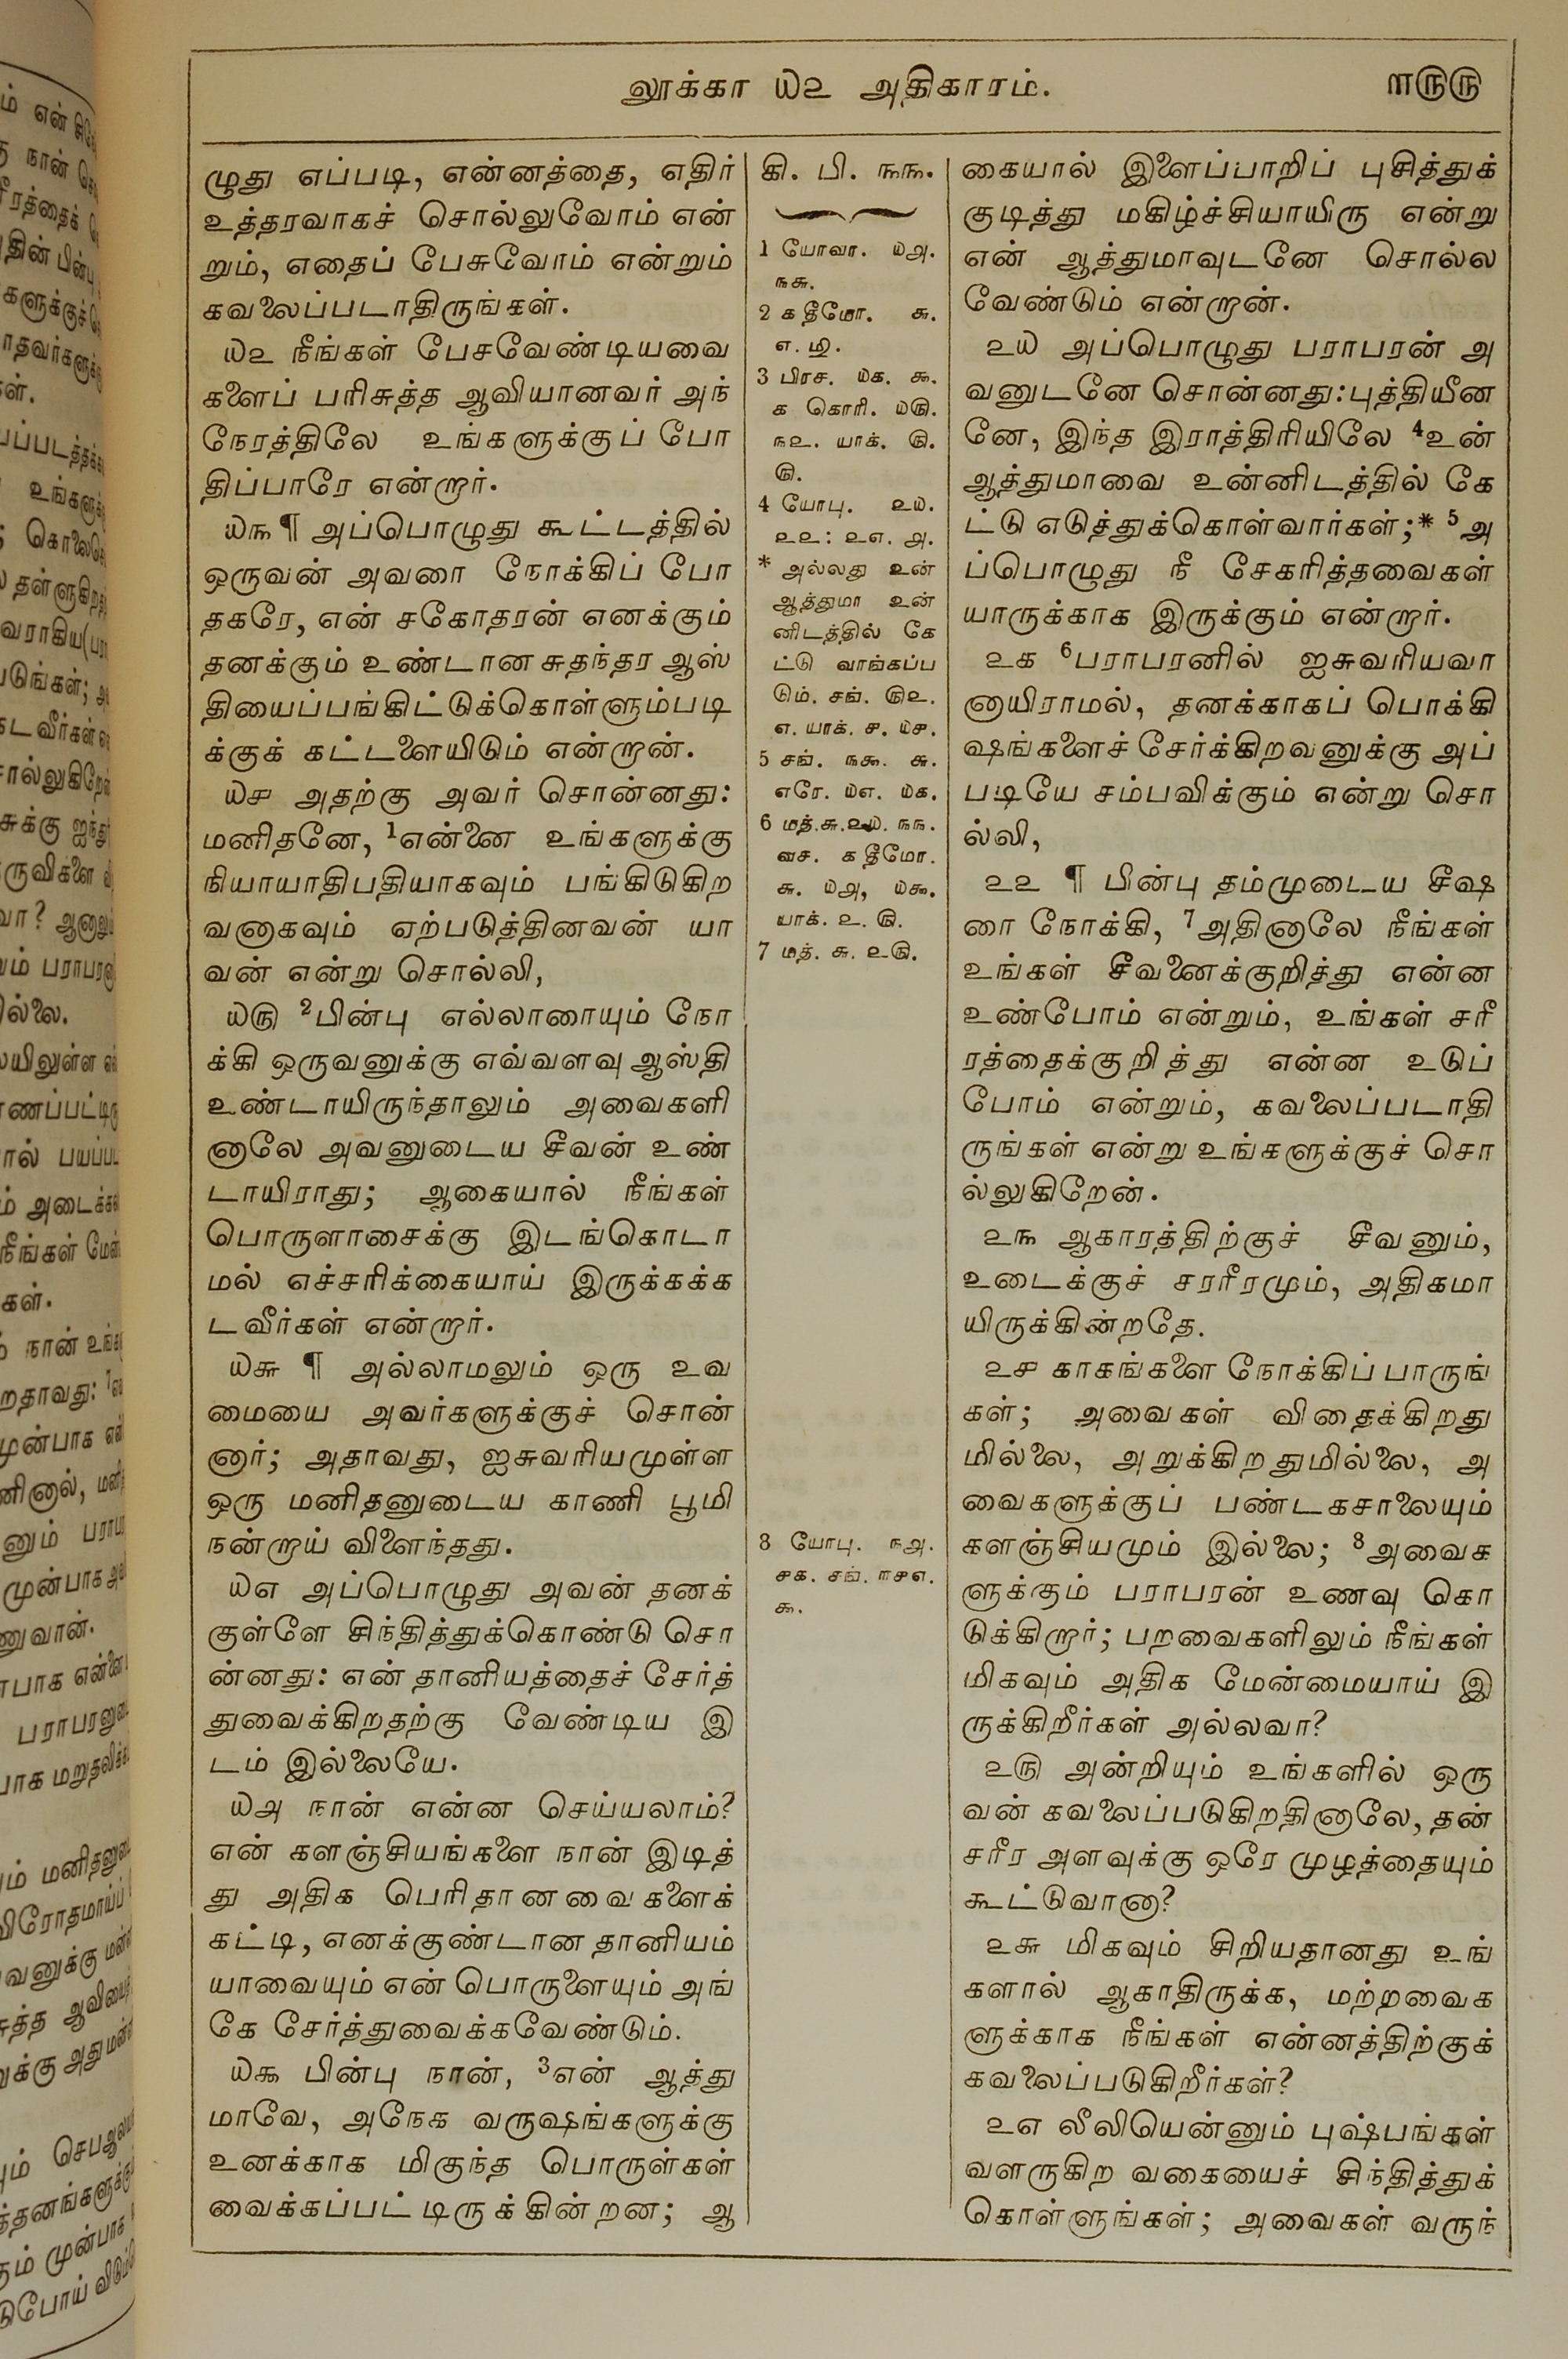 லூக்கா ௰௨ அதிகாரம்.
௩௫௫
ழுது எப்படி, என்னத்தை, எதிர்
உத்தரவாகச் சொல்லுவோம் என்
றும், எதைப் பேசுவோம் என்றும்
கவலைப்படாதிருங்கள்.
௰௨ நீங்கள் பேசவேண்டியவை
களைப் பரிசுத்த ஆவியானவர் அந்
நேரத்திலே உங்களுக்குப் போ
திப்பாரே என்றார்.
௰௩ ¶ அப்பொழுது கூட்டத்தில்
ஒருவன் அவரை நோக்கிப் போ
தகரே, என் சகோதரன் எனக்கும்
தனக்கும் உண்டான சுதந்தர ஆஸ்
தியைப்பங்கிட்டுக்கொள்ளும்படி
க்குக் கட்டளையிடும் என்றான்.
௰௪ அதற்கு அவர் சொன்னது:
மனிதனே, 1என்னை உங்களுக்கு
நியாயாதிபதியாகவும் பங்கிடுகிற
வனாகவும் ஏற்படுத்தினவன் யா
வன் என்று சொல்லி,
௰௫ 2பின்பு எல்லாரையும் நோ
க்கி ஒருவனுக்கு எவ்வளவு ஆஸ்தி
உண்டாயிருந்தாலும் அவைகளி
னாலே அவனுடைய சீவன் உண்
டாயிராது; ஆகையால் நீங்கள்
பொருளாசைக்கு இடங்கொடா
மல் எச்சரிக்கையாய் இருக்கக்க
டவீர்கள் என்றார்.
௰௬ ¶ அல்லாமலும் ஒரு உவ
மையை அவர்களுக்குச் சொன்
னார்; அதாவது, ஐசுவரியமுள்ள
ஒரு மனிதனுடைய காணி பூமி
நன்றாய் விளைந்தது.
௰௭ அப்பொழுது அவன் தனக்
குள்ளே சிந்தித்துக்கொண்டு சொ
ன்னது: என் தானியத்தைச் சேர்த்
துவைக்கிறதற்கு வேண்டிய இ
டம் இல்லையே.
௰௮ நான் என்ன செய்யலாம்?
என் களஞ்சியங்களை நான் இடித்
து அதிக பெரிதானவைகளைக்
கட்டி, எனக்குண்டான தானியம்
யாவையும் என் பொருளையும் அங்
கே சேர்த்துவைக்கவேண்டும்.
௰௯ பின்பு நான், 3என் ஆத்து
மாவே, அநேக வருஷங்களுக்கு
உனக்காக மிகுந்த பொருள்கள்
வைக்கப்பட்டிருக்கின்றன; ஆ
கி. பி. ௩௩.
1 யோவா. ௰௮.
௩௬.
2 ௧ தீமோ. ௬.
௭. ௰.
3 பிரச. ௰௧. ௯.
௧ கொரி. ௰௫.
௩௨. யாக். ௫.
௫.
4 யோபு. ௨௰.
௨௨: ௨௭. ௮.
* அல்லது உன்
ஆத்துமா உன்
னிடத்தில் கே
ட்டு வாங்கப்ப
டும். சங். ௫௨.
௭. யாக். ௪. ௰௪.
5 சங். ௩௯. ௬.
எரே. ௰௭. ௰௧.
6 மத்.௬.௨௰. ௩௩.
வச. ௧ தீமோ.
௬. ௰௮, ௰௯.
யாக். ௨. ௫.
7 மத். ௬. ௨௫.
8 யோபு. ௩௮.
௪௧. சங். ௱௪௭.
௯.
கையால் இளைப்பாறிப் புசித்துக்
குடித்து மகிழ்ச்சியாயிரு என்று
என் ஆத்துமாவுடனே சொல்ல
வேண்டும் என்றான்.
௨௰ அப்பொழுது பராபரன் அ
வனுடனே சொன்னது: புத்தியீன
னே, இந்த இராத்திரியிலே 4உன்
ஆத்துமாவை உன்னிடத்தில் கே
ட்டு எடுத்துக்கொள்வார்கள்;* 5அ
ப்பொழுது நீ சேகரித்தவைகள்
யாருக்காக இருக்கும் என்றார்.
௨௧ 6பராபரனில் ஐசுவரியவா
னாயிராமல், தனக்காகப் பொக்கி
ஷங்களைச் சேர்க்கிறவனுக்கு அப்
படியே சம்பவிக்கும் என்று சொ
ல்லி,
௨௨ ¶ பின்பு தம்முடைய சீஷ
ரை நோக்கி, 7அதினாலே நீங்கள்
உங்கள் சீவனைக்குறித்து என்ன
உண்போம் என்றும், உங்கள் சரீ
ரத்தைக்குறித்து என்ன உடுப்
போம் என்றும், கவலைப்படாதி
ருங்கள் என்று உங்களுக்குச் சொ
ல்லுகிறேன்.
௨௩ ஆகாரத்திற்குச் சீவனும்,
உடைக்குச் சரரீரமும், அதிகமா
யிருக்கின்றதே.
௨௪ காகங்களை நோக்கிப் பாருங்
கள்; அவைகள் விதைக்கிறது
மில்லை, அறுக்கிறதுமில்லை, அ
வைகளுக்குப் பண்டகசாலையும்
களஞ்சியமும் இல்லை; 8அவைக
ளுக்கும் பராபரன் உணவு கொ
டுக்கிறார்; பறவைகளிலும் நீங்கள்
மிகவும் அதிக மேன்மையாய் இ
ருக்கிறீர்கள் அல்லவா?
௨௫ அன்றியும் உங்களில் ஒரு
வன் கவலைப்படுகிறதினாலே, தன்
சரீர அளவுக்கு ஒரே முழத்தையும்
கூட்டுவானா?
௨௬ மிகவும் சிறியதானது உங்
களால் ஆகாதிருக்க, மற்றவைக
ளுக்காக நீங்கள் என்னத்திற்குக்
கவலைப்படுகிறீர்கள்?
௨௭ லீலியென்னும் புஷ்பங்கள்
வளருகிற வகையைச் சிந்தித்துக்
கொள்ளுங்கள்; அவைகள் வருந்